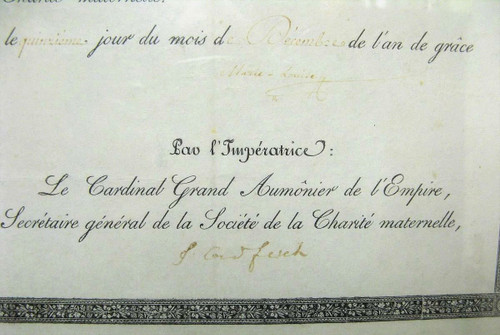 Charité maternelle.
le quinzième jour du mois de Décembre de l'an de grâce
Marie Louise
Par l'Impératrice :
Le Cardinal Grand Aumônier de l'Empire,
Secrétaire général de la Société de la Charité maternelle,
J Card Fesch